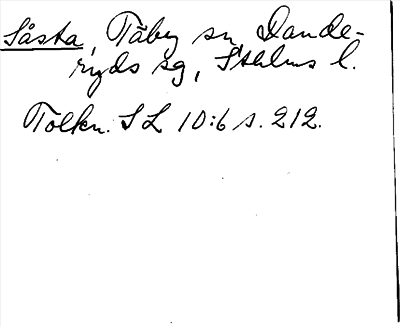 Såsta, Täby sn Dande-
ryds sg, Sthlms l.
Tolkn. SL 10:6 s. 212.